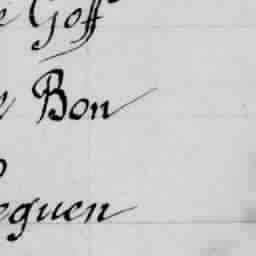 e Goff
e Bon
eguen